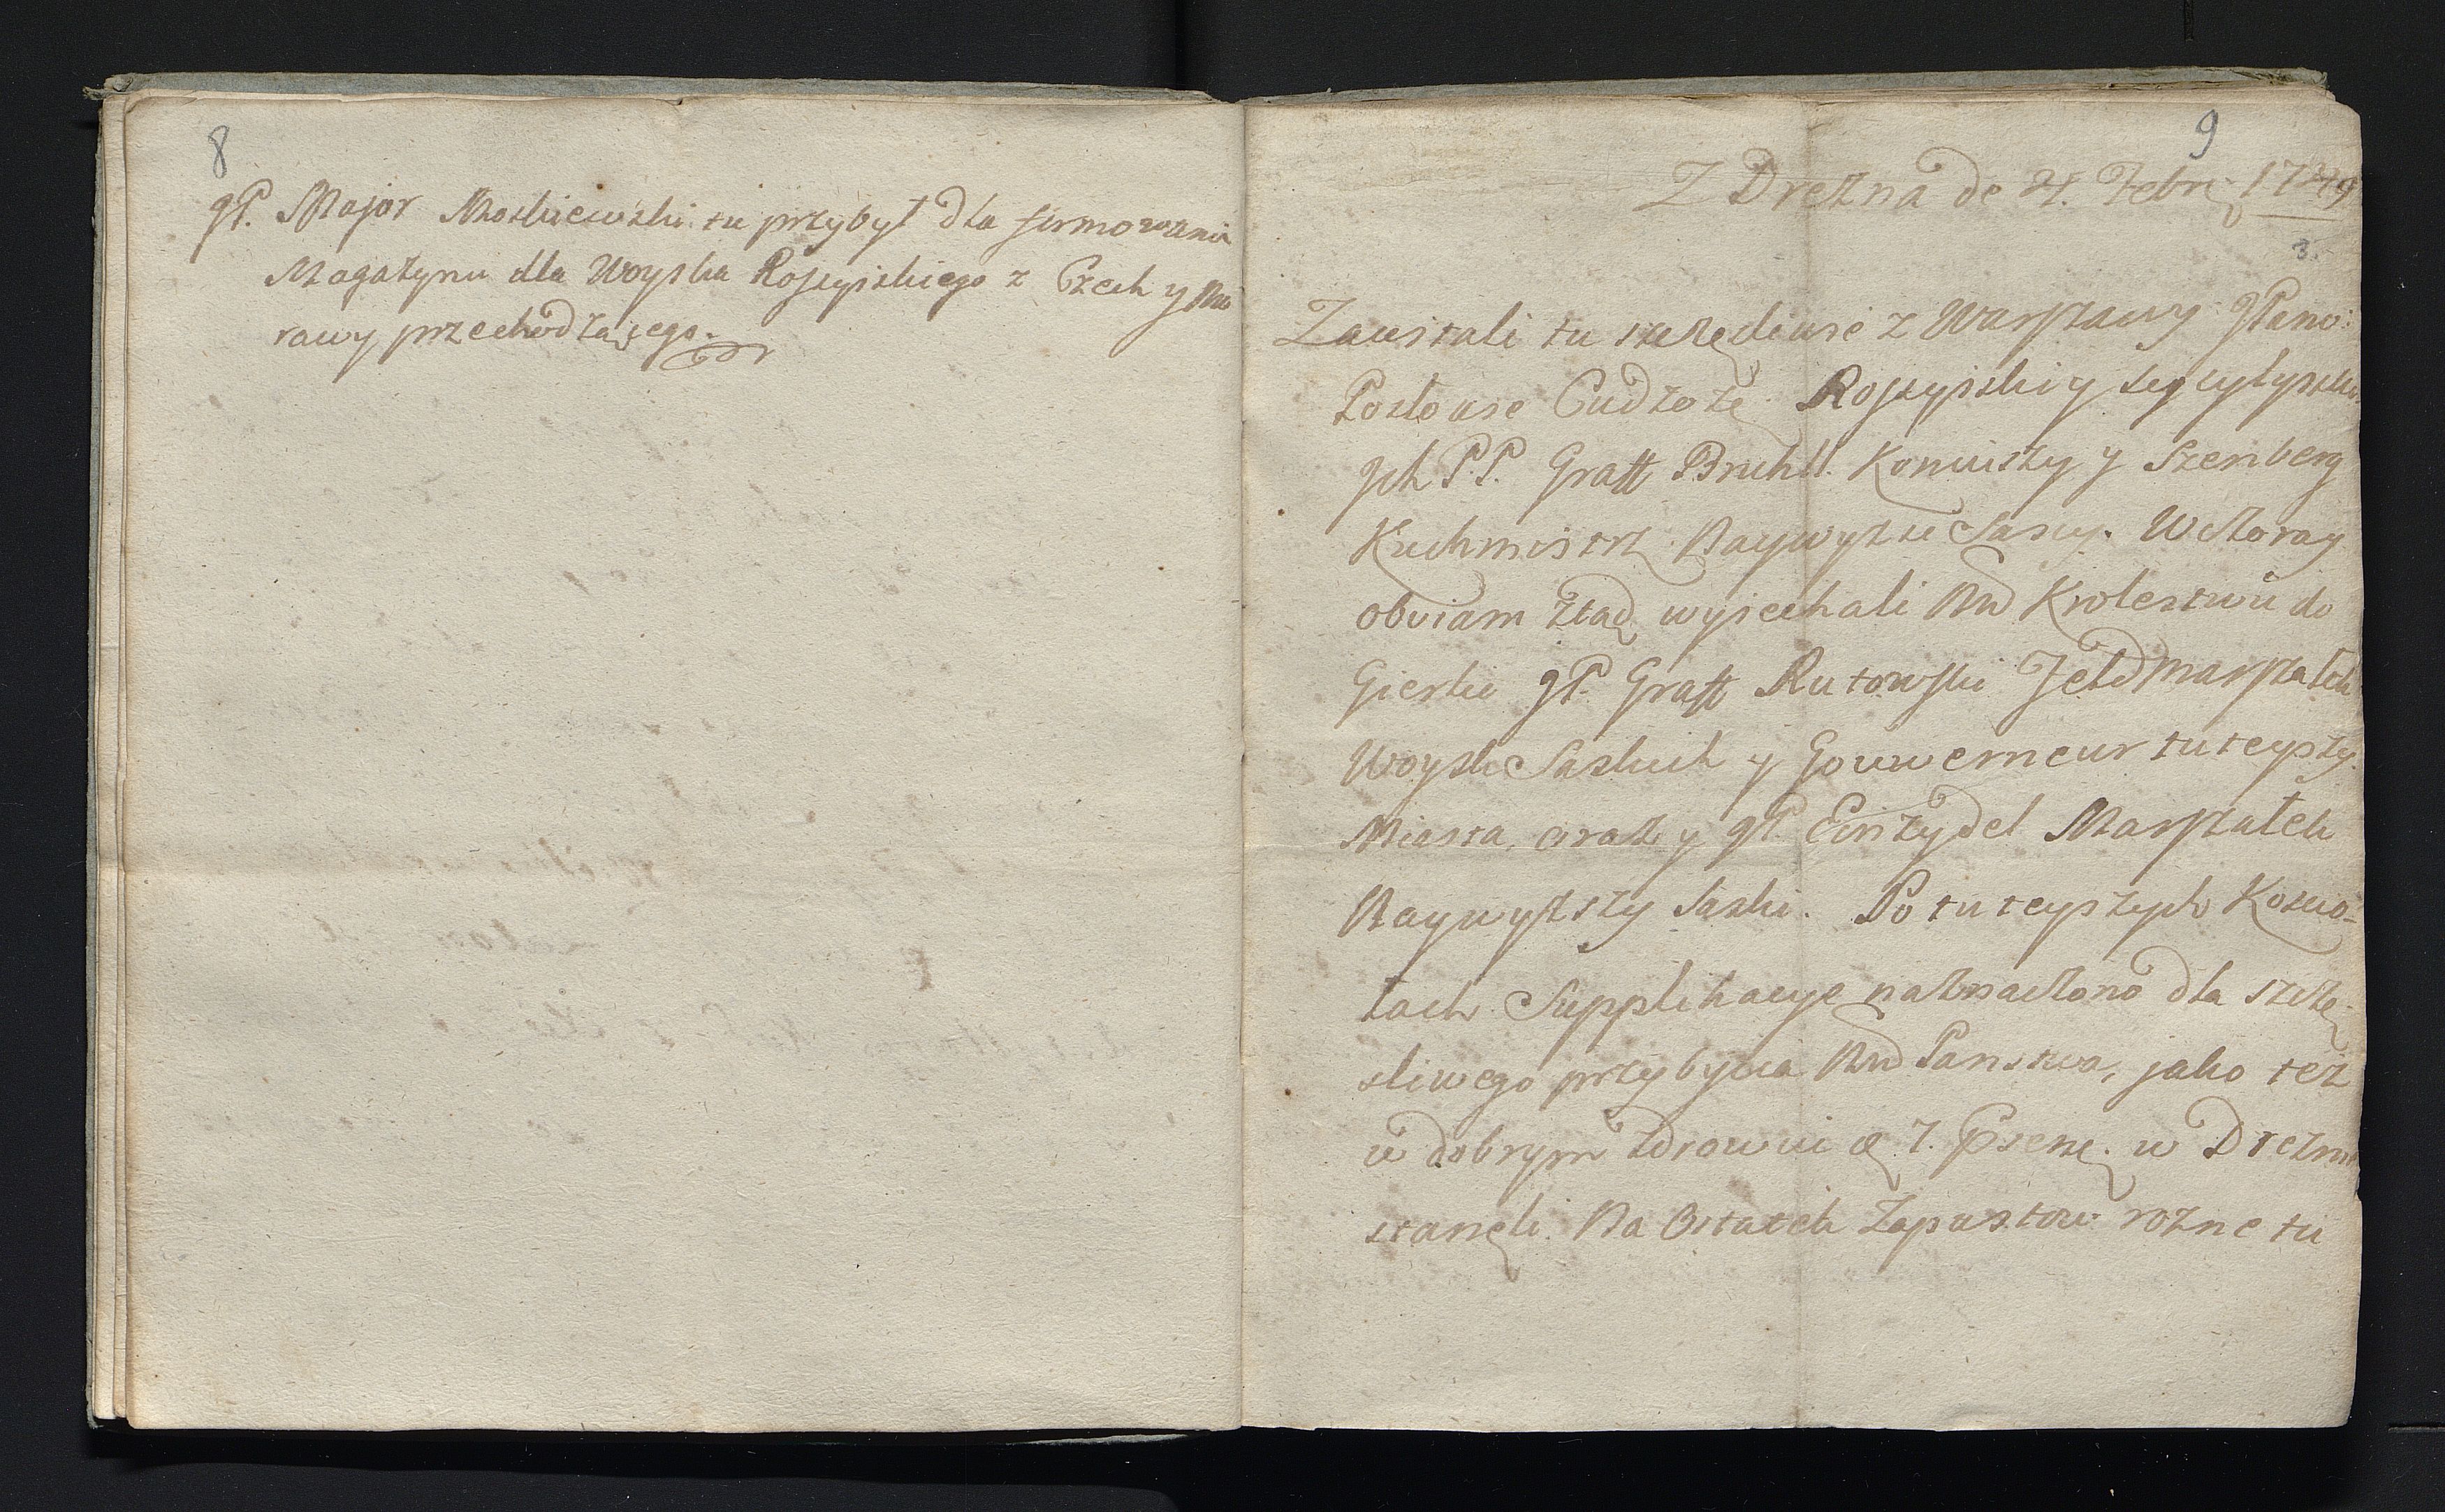 8
JP. Major Moskiewski tu przybył dla furmowania
Magazynu dla Woyska Rossyiskiego z Czech y Mo
rawy przechodzącego.
9
Z Drezna de 21. Febr. 1749
3.
Zawitali tu szczęśliwie z Warszawy JPano:
Posłowie Cudzoz. Rossyiski y
Ich P.P. Graff Bruhll Koniuszy y Szenberg
Kuchmistrz Naywyzsi Sascy. Wczoray
obviam ztąd wyiechali NN Krolestwu do
Gierlic JP. Graff Rutowski Feldmarszałek
Woysk Saskich y Gouwerneur tuteyszy
Miasta, oraz y JP. Einzydel Marszałek
Naywyższy Saski. Po tuteyszych Koscio-
łach Supplikacye naznaczono dla szczę-
sliwego przybycia NN Panstwa, jako też
w dobrym zdrowiu w Drezn
stanęli. Na Ostatek Zapustow rożne tu